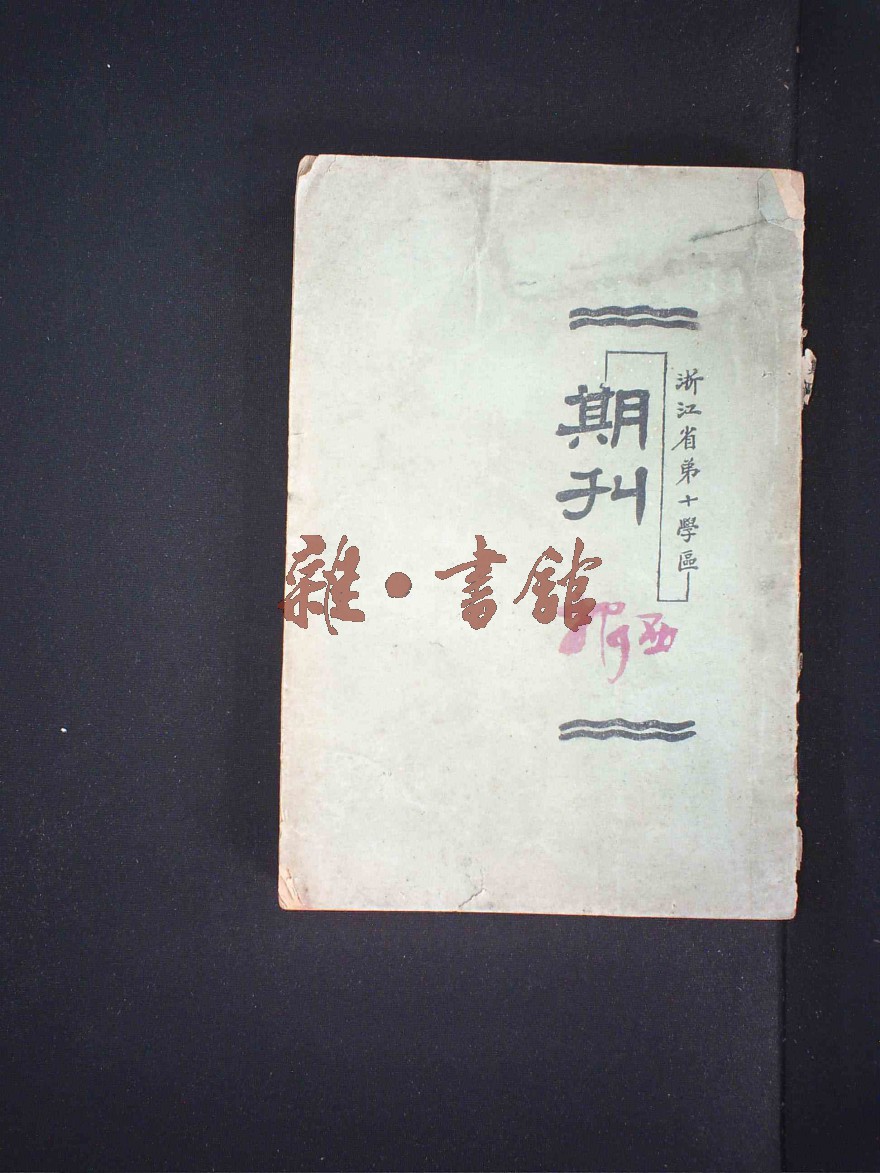 浙江省第十學區
期刊
雜·書館